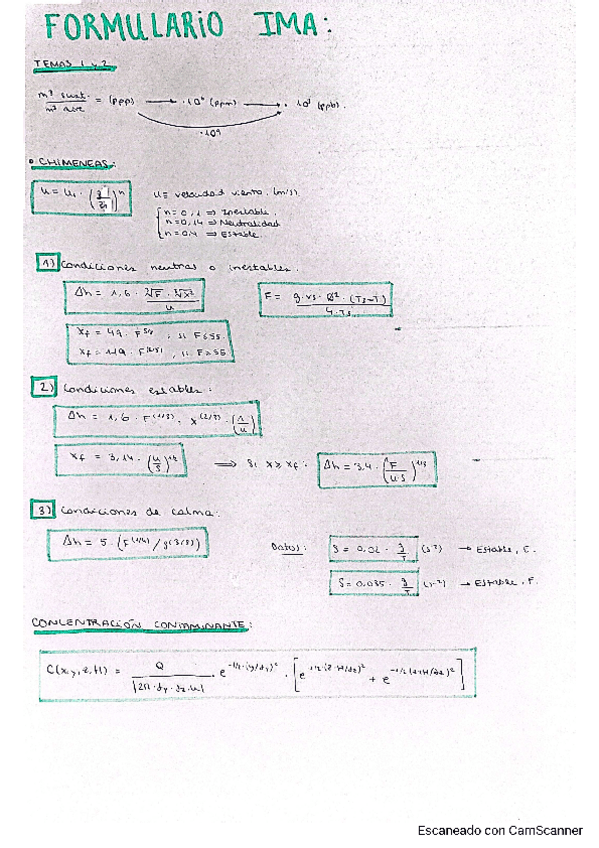 FORMULARIO IMA:
TEMAS 1 y 2
m³ sust. / m³ aire = (ppp) → ·10⁶ (ppm) → ·10³ (ppb).
·10⁹
• CHIMENEAS:
u = u₁ · (z/z₁)ⁿ
u = velocidad viento. (m/s)
n=0,1 ⇒ Inestable.
n=0,14 ⇒ Neutralidad
n=0,4 ⇒ Estable.
1) Condiciones neutras o inestables.
Δh = 1,6 · ∛F · ∛x² / u
F = g · vs · Ø² · (Ts-T) / 4·Ts
xf = 49 · F^5/8, si F≤55.
xf = 119 · F^(2/5), si F≥55
2) Condiciones estables:
Δh = 1,6 · F^(1/3) · x^(2/3) · (1/u)
xf = 3,14 · (u/S)^1/2 ⇒ Si x ≥ xf: Δh = 3,4 · (F/u·S)^1/3
3) Condiciones de calma.
Δh = 5 · (F^(1/4) / S^(3/8))
Datos:
S = 0,02 · g/T (s⁻²) → Estable, E.
S = 0,035 · g/T (s⁻²) → Estable, F.
CONCENTRACIÓN CONTAMINANTE:
C(x,y,z,H) = Q / |2π·σy·σz·u| · e^-1/2·(y/σy)² · [e^-1/2·(z-H/σz)² + e^-1/2(z+H/σz)²]
Escaneado con CamScanner